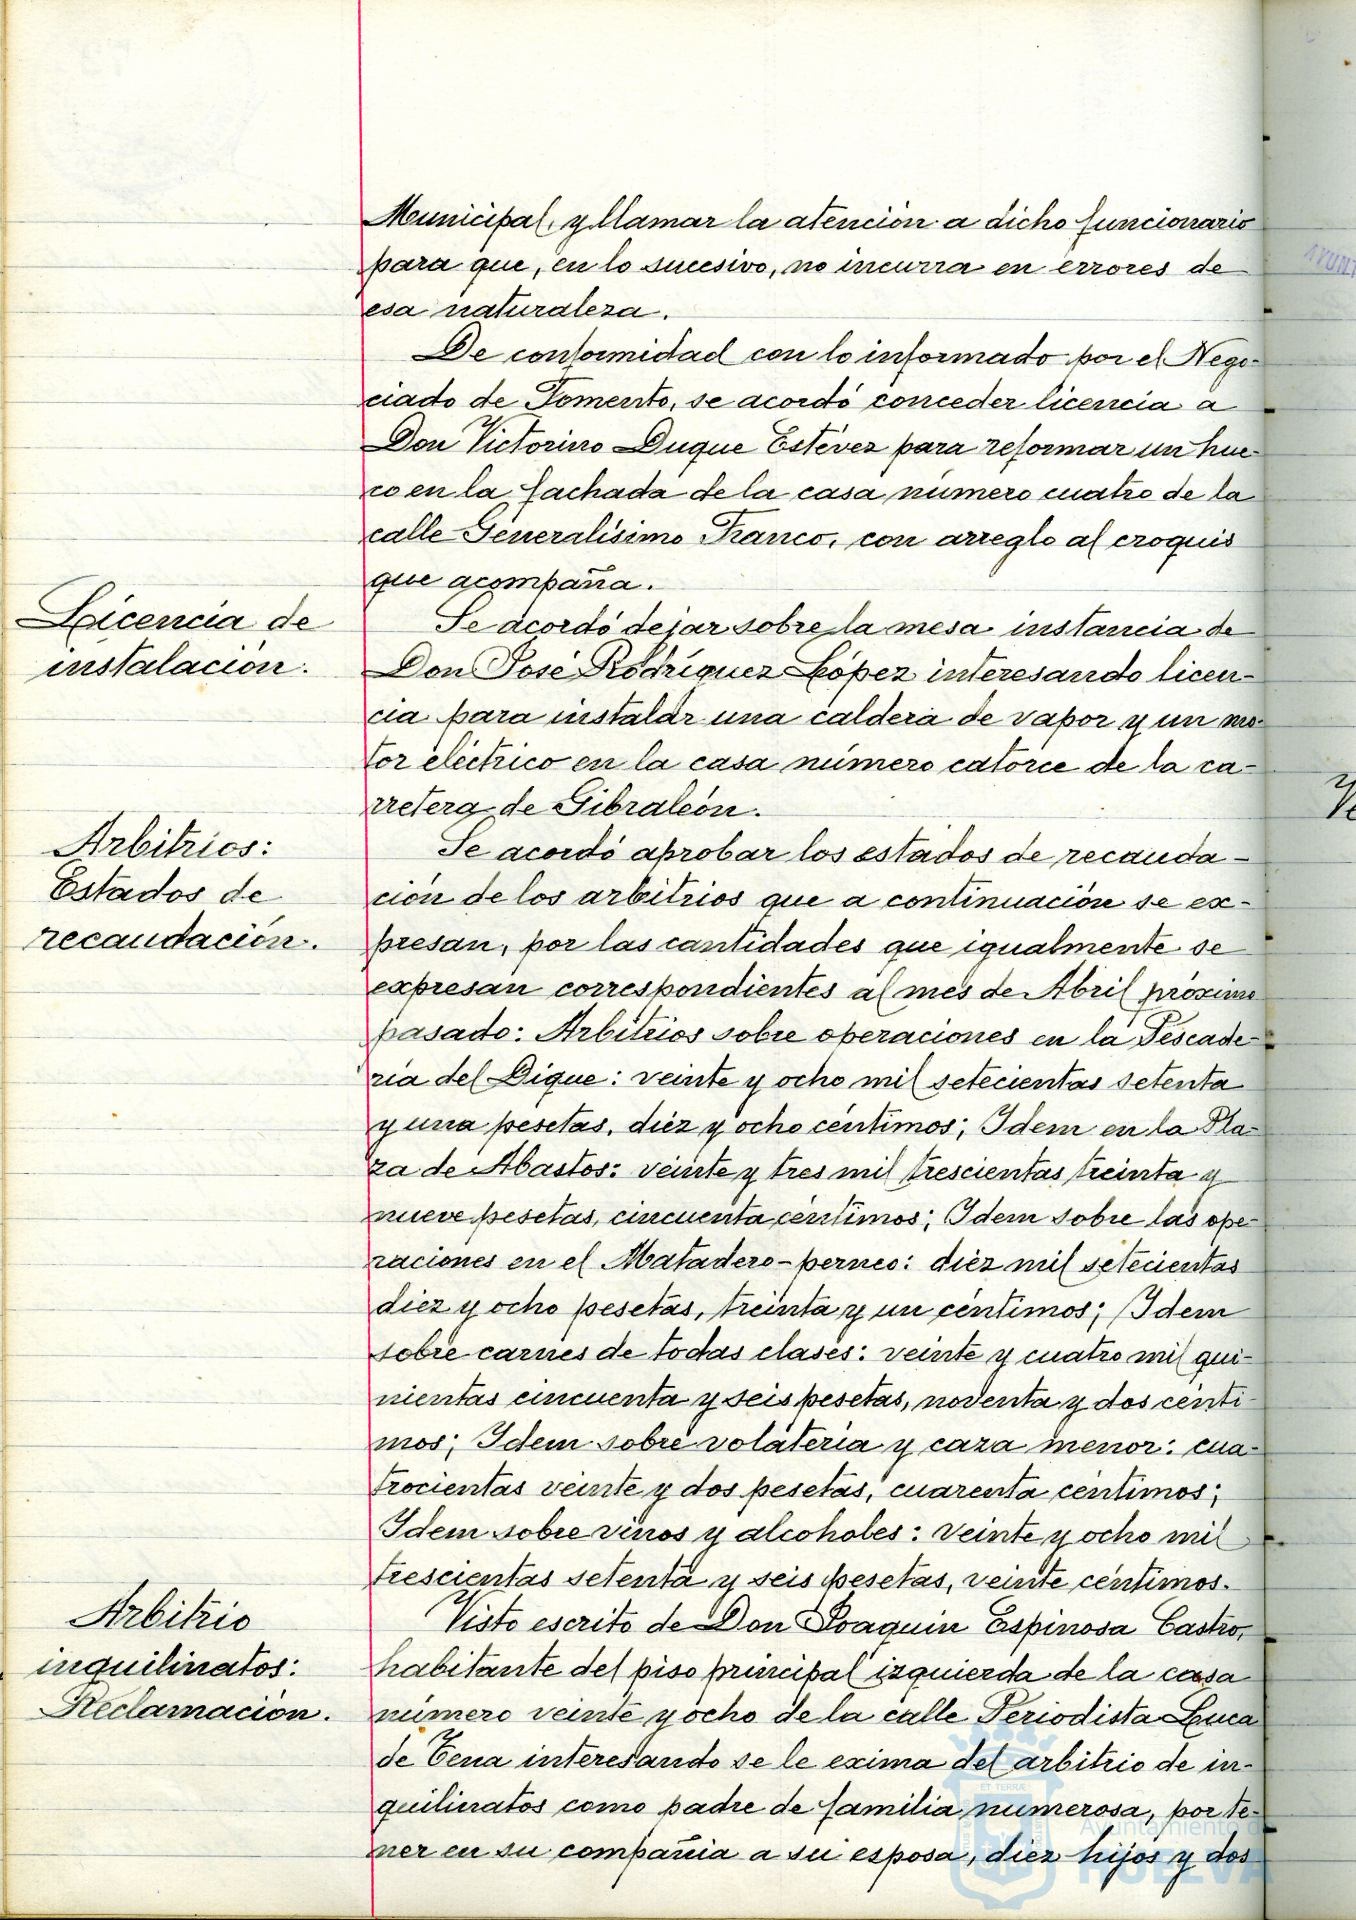 Municipal, y llamar la atención a dicho funcionario
para que, en lo sucesivo, no incurra en errores de
esa naturaleza.
De conformidad con lo informado por el Nego-
ciado de Fomento, se acordó conceder licencia a
Don Victorino Duque Estévez para reformar un hue-
co en la fachada de la casa número cuatro de la
calle Generalísimo Franco, con arreglo al croquis
que acompaña.
Licencia de
instalación.
Se acordó dejar sobre la mesa instancia de
Don José Rodríguez López interesando licen-
cia para instalar una caldera de vapor y un mo-
tor eléctrico en la casa número catorce de la ca-
rretera de Gibraleón.
Arbitrios:
Estados de
recaudación.
Se acordó aprobar los estados de recauda-
ción de los arbitrios que a continuación se ex-
presan, por las cantidades que igualmente se
expresan correspondientes al mes de Abril próximo
pasado: Arbitrios sobre operaciones en la Pescade-
ría del Dique: veinte y ocho mil setecientas setenta
y una pesetas, diez y ocho céntimos; Idem en la Pla-
za de Abastos: veinte y tres mil trescientas treinta y
nueve pesetas, cincuenta céntimos; Idem sobre las ope-
raciones en el Matadero-perneo: diez mil setecientas
diez y ocho pesetas, treinta y un céntimos; Idem
sobre carnes de todas clases: veinte y cuatro mil qui-
nientas cincuenta y seis pesetas, noventa y dos cénti-
mos; Idem sobre volatería y caza menor: cua-
trocientas veinte y dos pesetas, cuarenta céntimos;
Idem sobre vinos y alcoholes: veinte y ocho mil
trescientas setenta y seis pesetas, veinte céntimos.
Arbitrio
inquilinatos:
Reclamación.
Visto escrito de Don Joaquin Espinosa Castro,
habitante del piso principal izquierda de la casa
número veinte y ocho de la calle Periodista Luca
de Tena interesando se le exima del arbitrio de in-
quilinatos como padre de familia numerosa, por te-
ner en su compañia a su esposa, diez hijos y dos
Ayuntamiento de
HUELVA